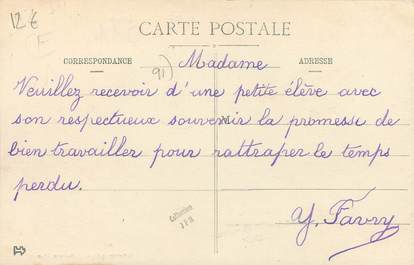 12 €
CARTE POSTALE
CORRESPONDANCE
ADRESSE
91)
Madame
Veuillez recevoir d'une petite élève avec
son respectueux souvenir la promesse de
bien travailler pour rattraper le temps
perdu.
Y. Favry
Collection